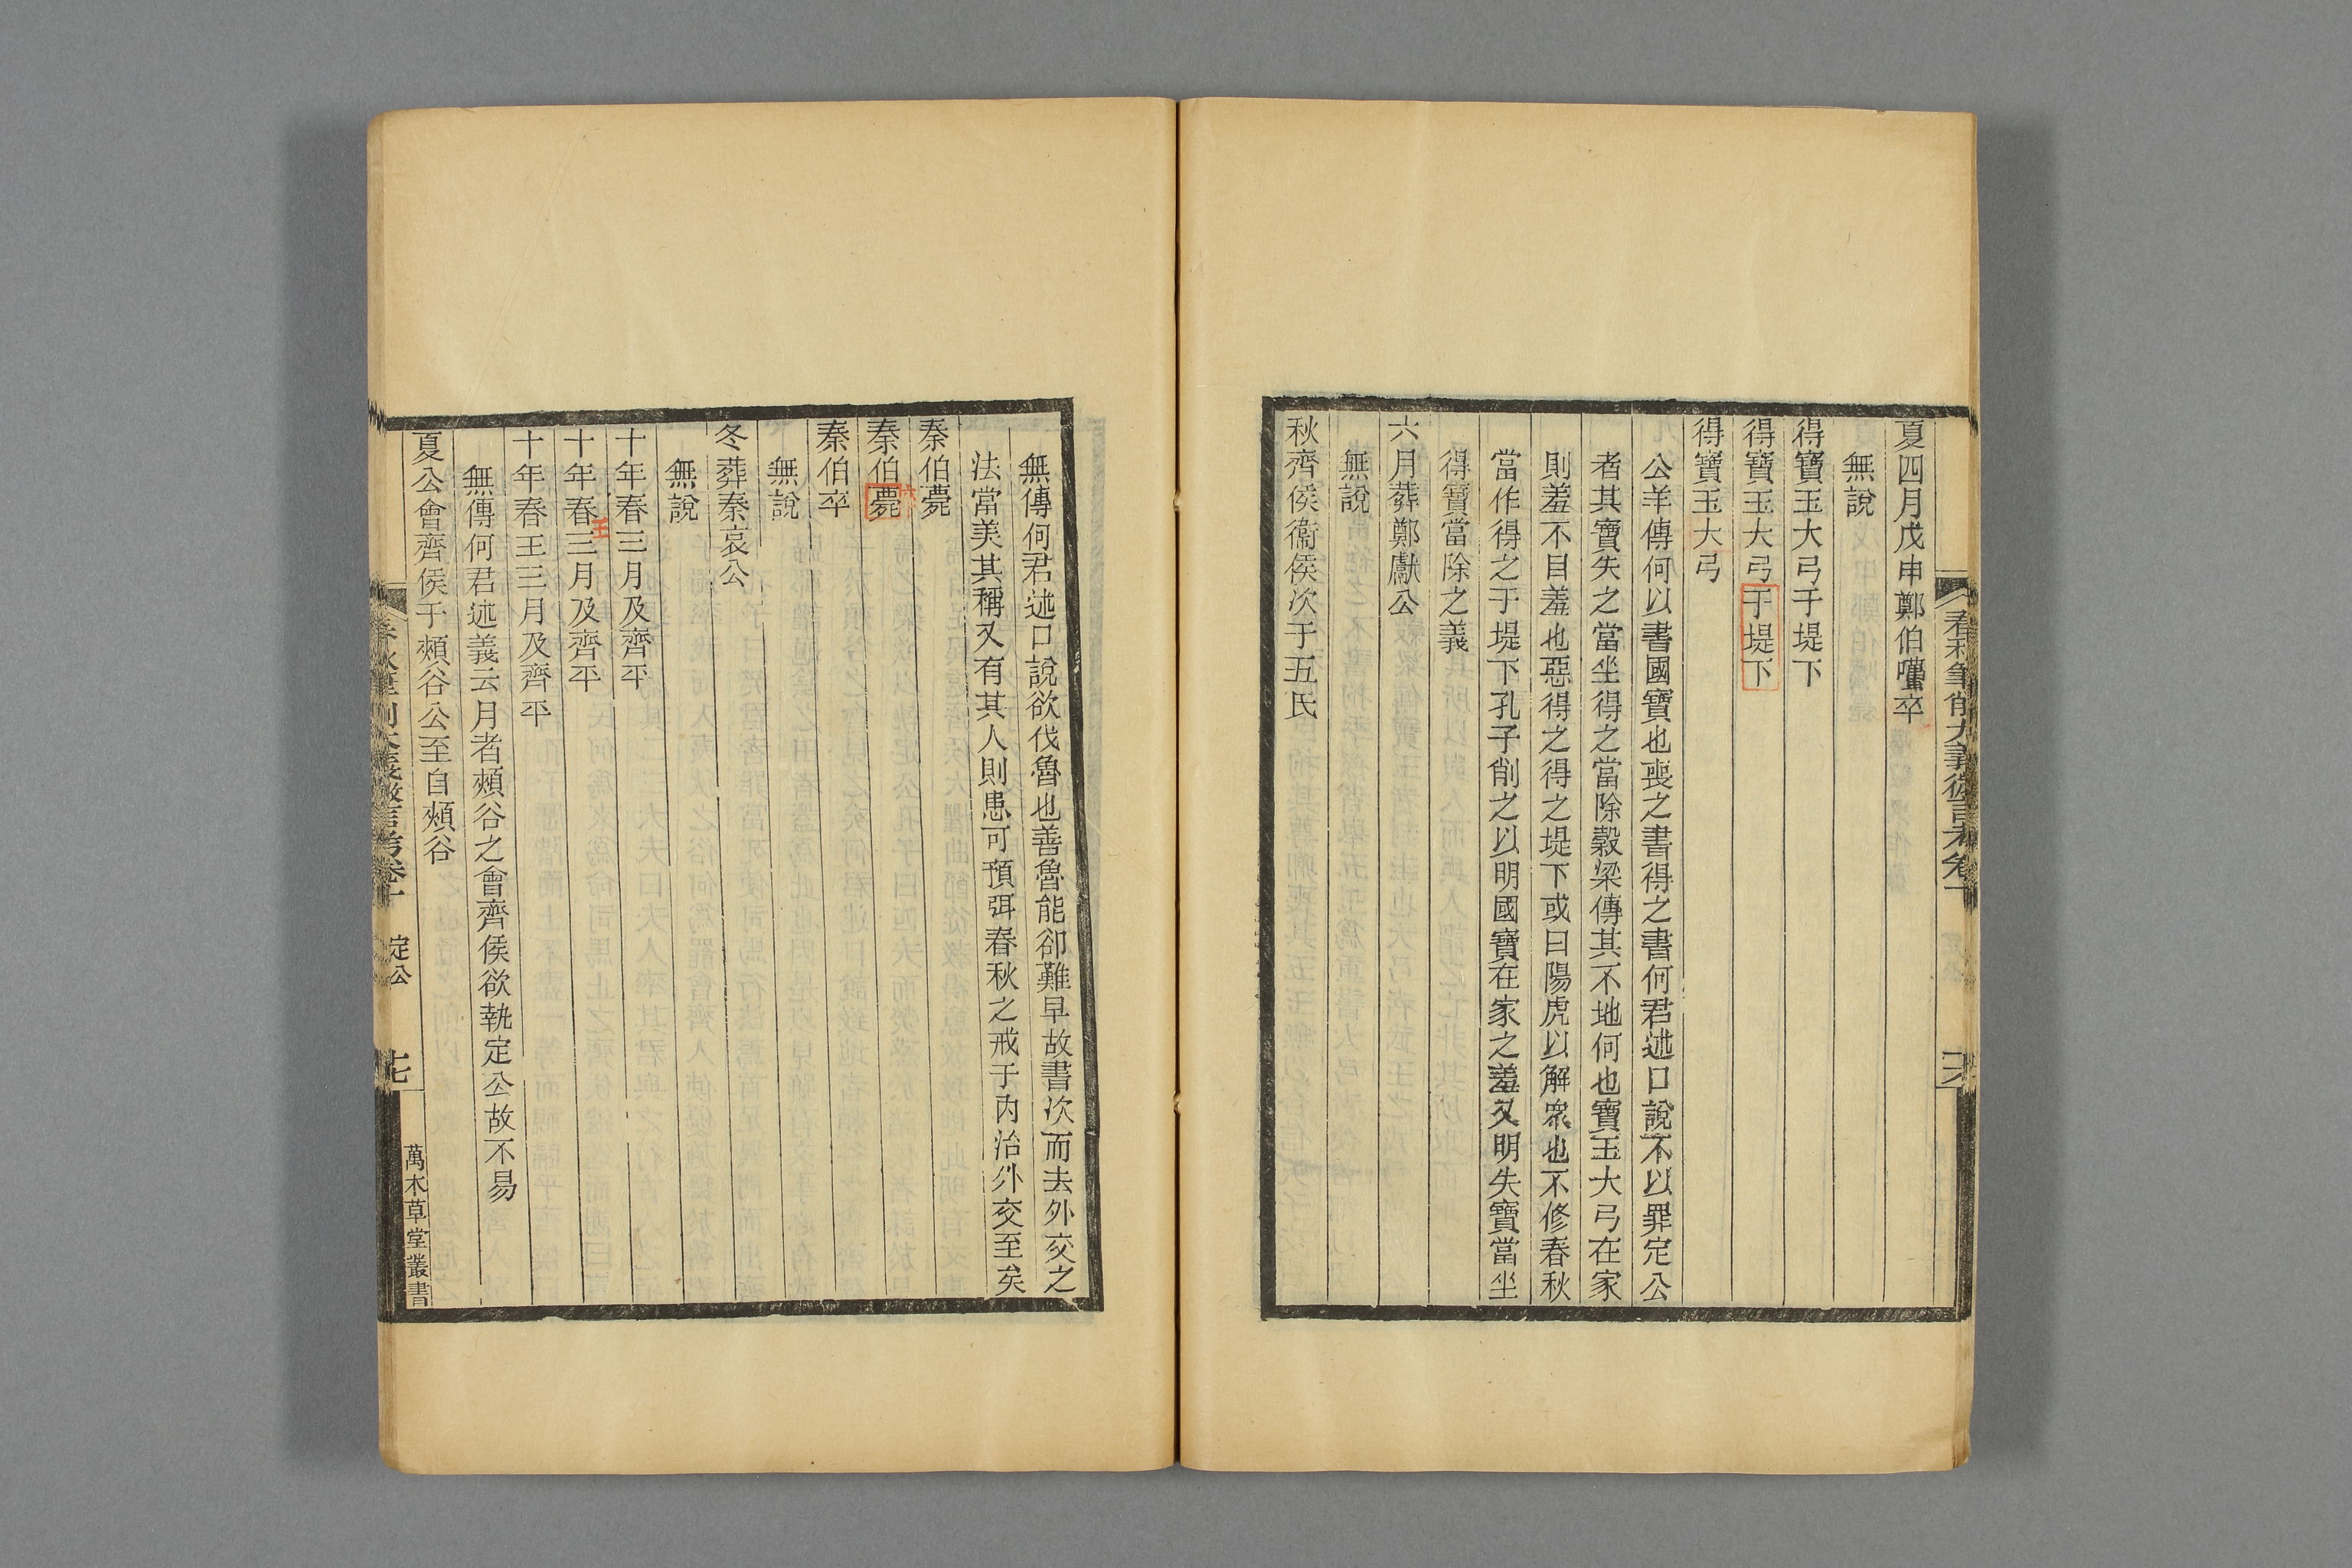 春秋筆削大義微言考卷十
夏四月戊申鄭伯囆卒
無說
得寶玉大弓于堤下
得寶玉大弓于堤下
得寶玉大弓
公羊傳何以書國寶也喪之書得之書何君述口說不以罪定公
者其寶失之當坐得之當除穀梁傳其不地何也寶玉大弓在家
則羞不目羞也惡得之得之堤下或曰陽虎以解衆也不修春秋
當作得之于堤下孔子削之以明國寶在家之羞又明失寶當坐
得寶當除之義
六月葬鄭獻公
無說
秋齊侯衞侯次于五氏
無傳何君述口說欲伐魯也善魯能卻難早故書次而去外交之
法當美其稱又有其人則患可預弭春秋之戒于內治外交至矣
秦伯薨
秦伯薨
秦伯卒
無說
冬葬秦哀公
無說
十年春三月及齊平
十年春王三月及齊平
十年春王三月及齊平
無傳何君述義云月者頰谷之會齊侯欲執定公故不易
夏公會齊侯于頰谷公至自頰谷
春秋筆削大義微言考卷十
定公
十七
萬木草堂叢書